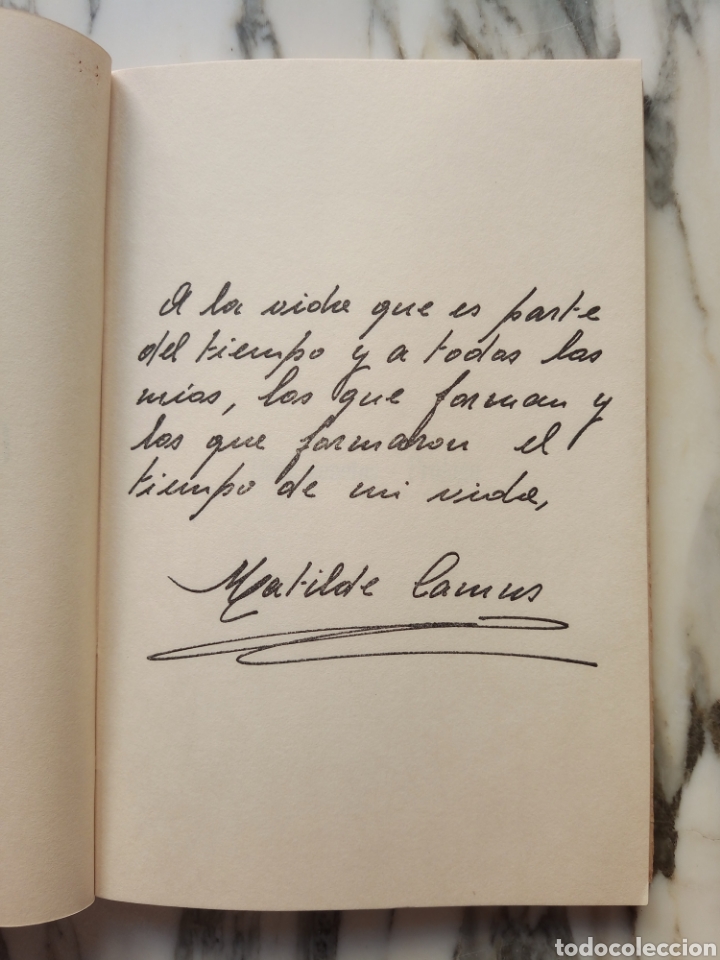 A la vida que es parte
del tiempo y a todos los
míos, los que forman y
los que formaron el
tiempo de mi vida,
Matilde Camus
todocoleccion